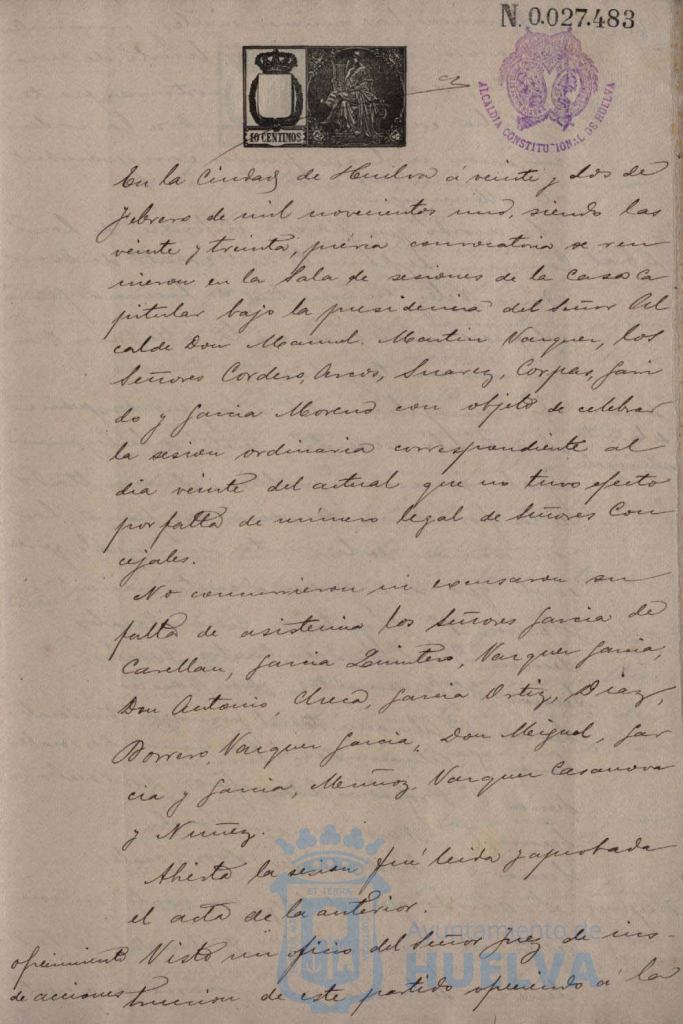 N. 0.027.483
10 CENTIMOS
ALCALDIA CONSTITUCIONAL DE HUELVA
En la Ciudad de Huelva á veinte y dos de
Febrero de mil novecientos uno, siendo las
veinte y treinta, prévia convocatoria se reu
nieron en la Sala de sesiones de la casa ca
pitular bajo la presidencia del Señor Al
calde Don Manuel Martin Vazquez, los
Señores Cordero, Arcos, Suarez, Corpas, Garri
do y Garcia Moreno con objeto de celebrar
la sesion ordinaria correspondiente al
dia veinte del actual que no tuvo efecto
por falta de número legal de Señores Con
cejales.
No concurrieron ni excusaron su
falta de asistencia los Señores Garcia de
Castellan, Garcia Quintero, Vazquez Garcia,
Don Antonio, Checa, Garcia Ortiz, Diaz,
Borrero, Vazquez Garcia, Don Miguel, Gar
cia y Garcia, Muñoz, Vazquez Casanova
y Nuñez.
Abierta la sesion fué leida y aprobada
el acta de la anterior.
ofrecimiento
de acciones
Visto un oficio del Señor Juez de ins-
truccion de este partido ofreciendo á la
Ayuntamiento de
HUELVA